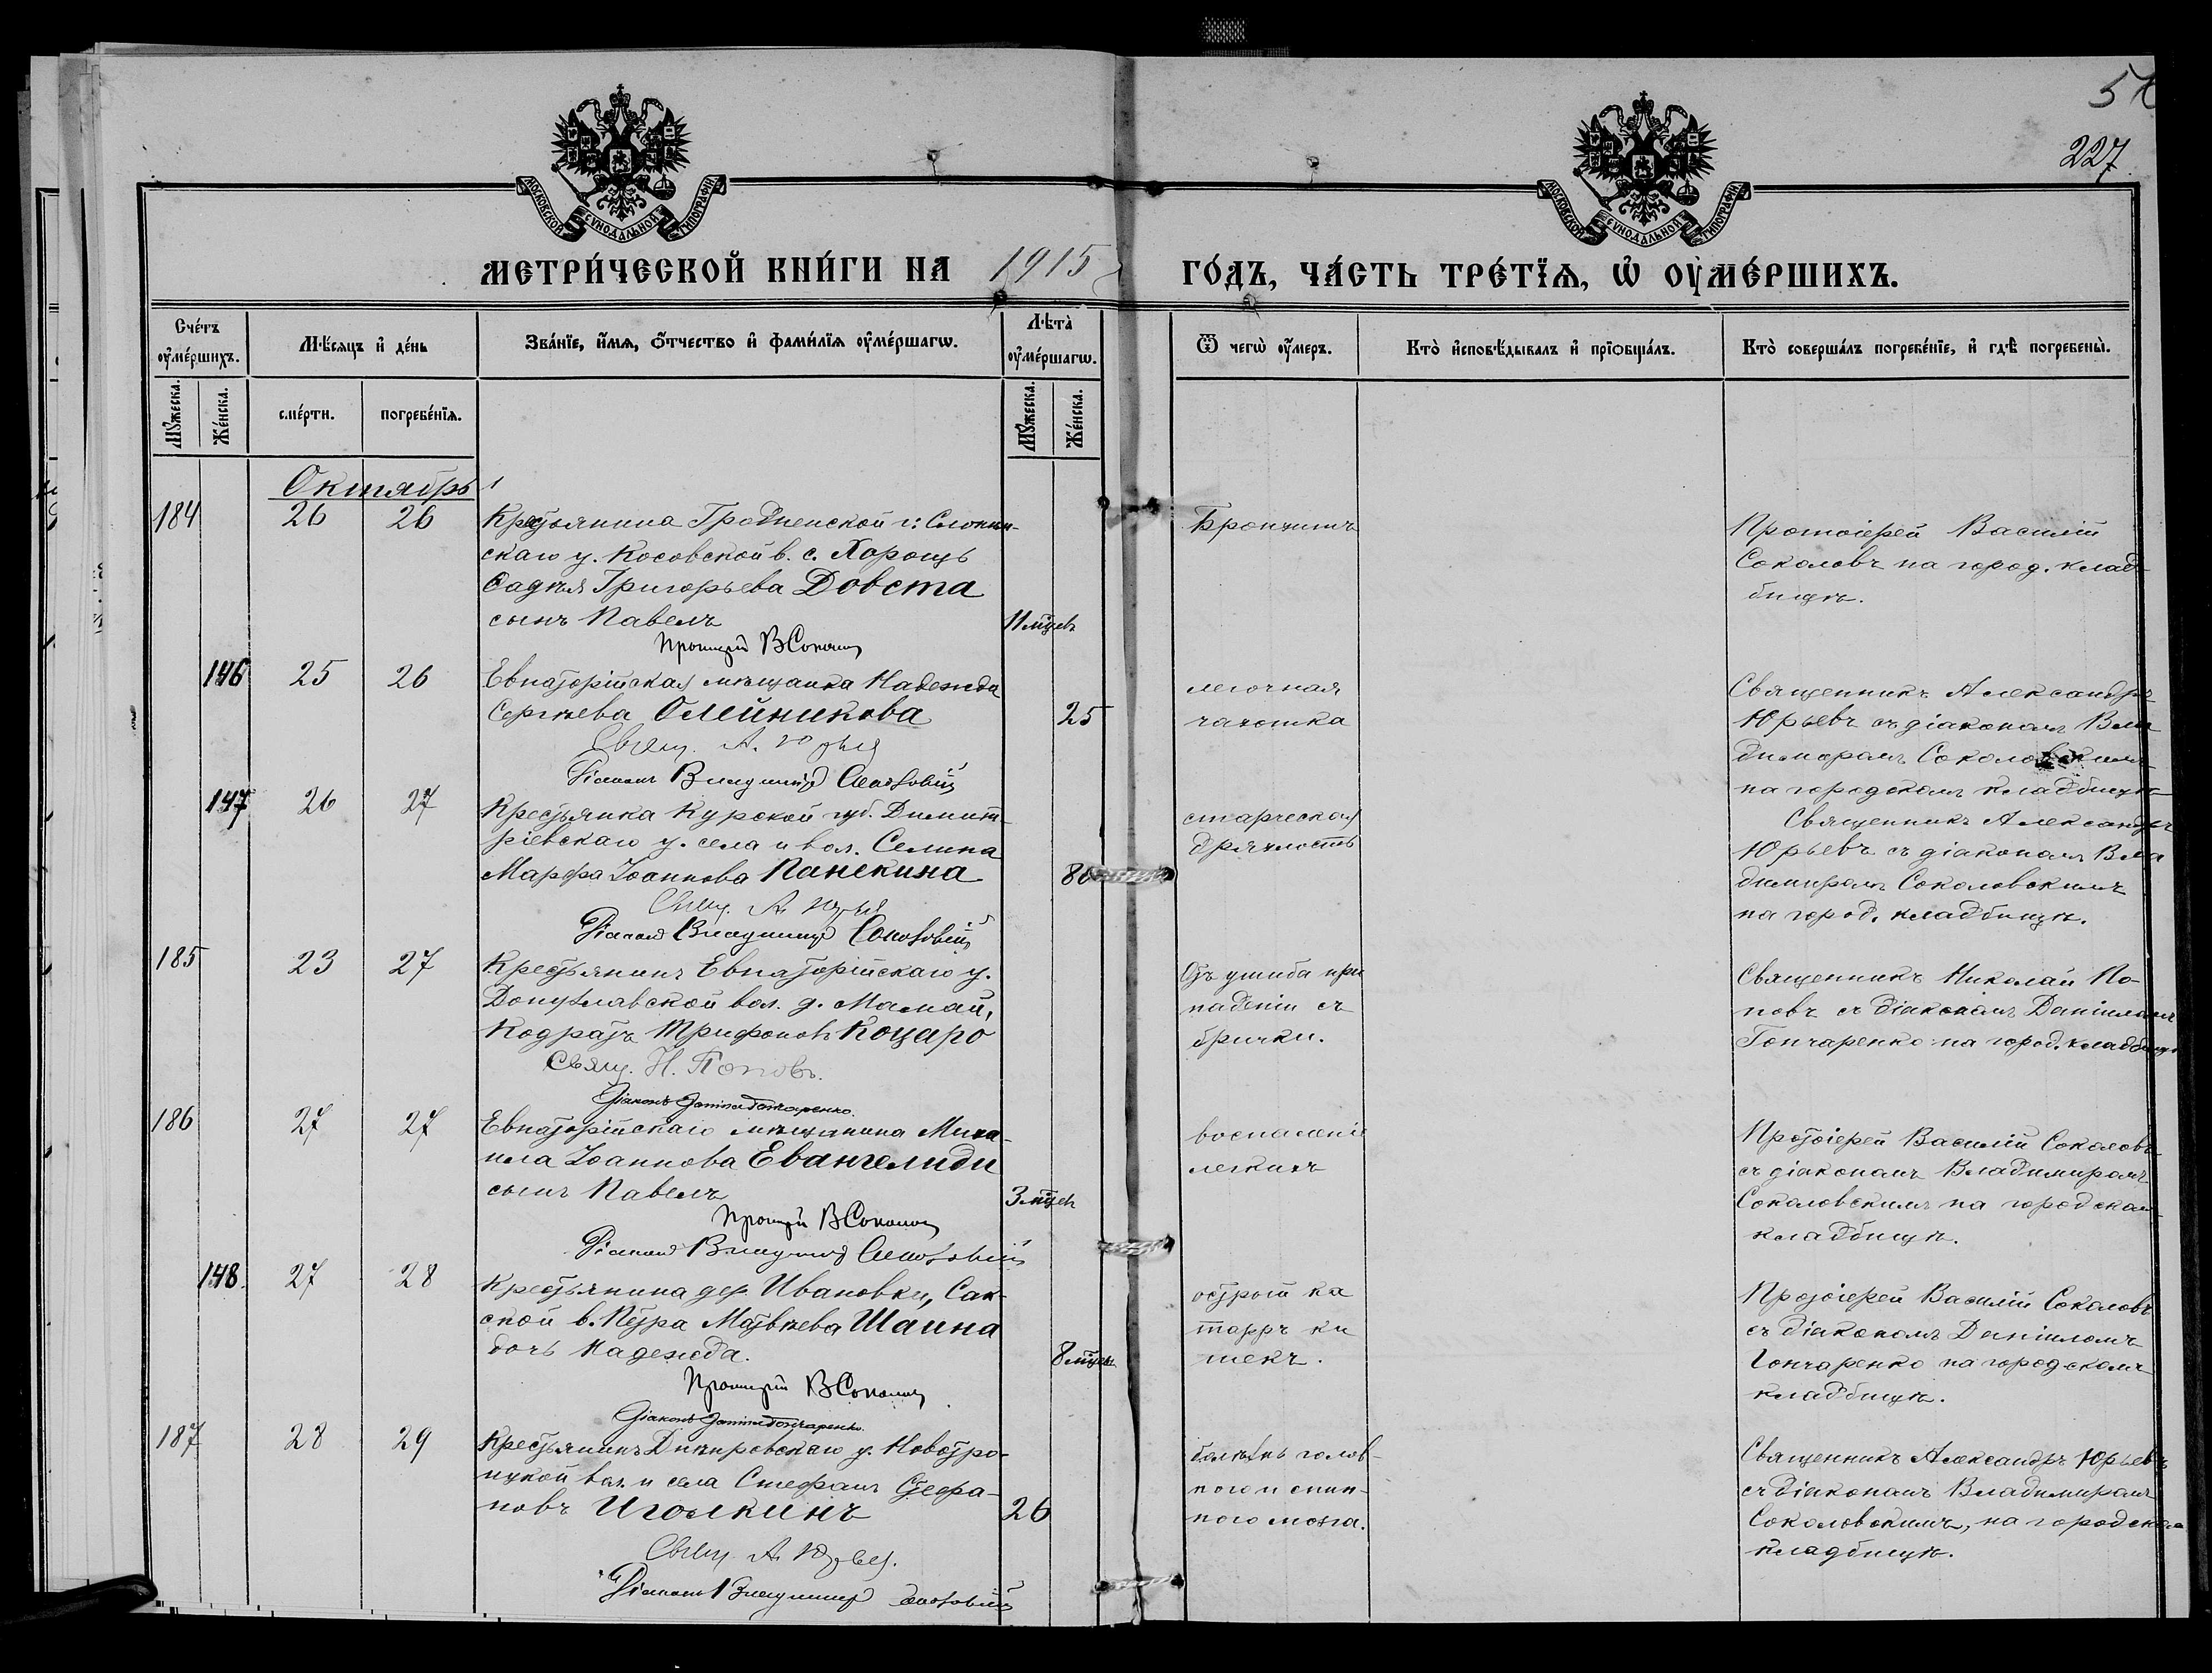 227
МОСКОВСКОЙ СѴНОДАЛЬНОЙ ТИПОГРАФІИ
МОСКОВСКОЙ СѴНОДАЛЬНОЙ ТИПОГРАФІИ
МЕТРИ́ЧЕСКОЙ КНИ́ГИ НА 1915
ГО́ДЪ, ЧА́СТЬ ТРЕ́ТЇѦ, Ѡ҆ ОУ҆МЕ́РШИХЪ.
Сче́тъ оу҆ме́ршихъ.
Мꙋ́жеска.
Же́нска.
Мѣ́сѧцъ и҆ де́нь
сме́рти.
погребе́нїѧ.
Зва́нїе, и҆́мѧ, ѻ҆́тчество и҆ фами́лїѧ оу҆ме́ршагѡ.
Лѣ̀та оу҆ме́ршагѡ.
Мꙋ́жеска.
Же́нска.
Ѿ чегѡ̀ оу҆́меръ.
Кто̀ и҆сповѣ́дывалъ и҆ прїѡбща́лъ.
Кто̀ соверша́лъ погребе́нїе, и҆ гдѣ̀ погребены̀.
Октябрь
184 26 26
Крестьянина Гродненской г: Слоним-
скаго у. Косовской в. с. Хорощь
Фадѣя Григорьева Довста
сынъ Павелъ 11 мцевъ
Протоіерей В Соколовъ
Бронхитъ
Протоіерей Василій
Соколовъ на город. клад-
бищѣ.
146 25 26
Евпаторійская мѣщанка Надежда
Сергѣева Олейникова 25
Свящ. А. Юрьевъ
Діаконъ Владиміръ Соколовскій
легочная
чахотка
Священникъ Александръ
Юрьевъ съ діакономъ Вла
димиромъ Соколовскимъ
на городскомъ кладбищѣ
147 26 27
Крестьянка Курской губ. Димит-
ріевскаго у. села и вол. Селина
Марфа Іоаннова Панекина
Свящ. А. Юрьевъ
Діаконъ Владиміръ Соколовскій
старческая
дряхлость
Священникъ Александръ
Юрьевъ съ діакономъ Вла
димиромъ Соколовскимъ
на город. кладбищѣ.
185 23 27
Крестьянинъ Евпаторійскаго у.
Донузлавской вол. д. Мамай,
Кодратъ Трифоновъ Коцаро
Свящ. Н. Поповъ.
Діаконъ Даніилъ Гончаренко.
Отъ ушиба при
паденіи съ
брички.
Священникъ Николай По-
повъ съ діакономъ Даніиломъ
Гончаренко на город. кладбищѣ
186 27 27
Евпаторійскаго мѣщанина Миха-
ила Іоаннова Евангелиди
сынъ Павелъ 3 мцев
Протоіерей В Соколовъ
Діаконъ Владиміръ Соколовскій
воспаленіе
легкихъ
Протоіерей Василій Соколовъ
съ діакономъ Владимиромъ
Соколовскимъ на городскомъ
кладбищѣ.
148. 27 28
Крестьянина дер. Ивановки, Сак-
ской в. Петра Матвѣева Шаина
дочь Надежда. 8 мцевъ
Протоіерей В Соколовъ
Діаконъ Даніилъ Гончаренко.
острый ка
тарръ ки
шекъ.
Протоіерей Василій Соколовъ
съ діакономъ Даніиломъ
Гончаренко на городскомъ
кладбищѣ.
187 28 29
Крестьянинъ Днѣпровскаго у. Новотро-
ицкой вол. и села Стефанъ Стефа-
новъ Иголкинъ 26
Свящ. А. Юрьевъ.
Діаконъ Владиміръ Соколовскій
болѣзнь голов-
ного и спин-
ного мозга.
Священникъ Александръ Юрьевъ
съ діакономъ Владимиромъ
Соколовскимъ, на городском
кладбищѣ.